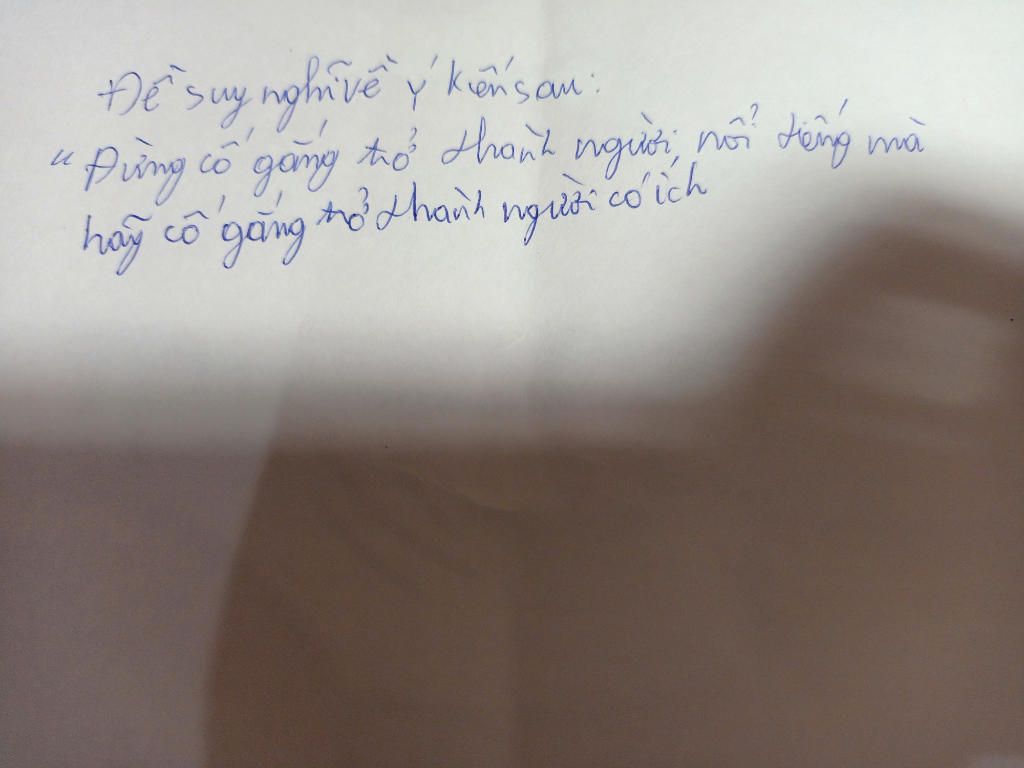 Đề suy nghĩ về ý kiến sau:
"Đừng cố gắng trở thành người nổi tiếng mà
hãy cố gắng trở thành người có ích